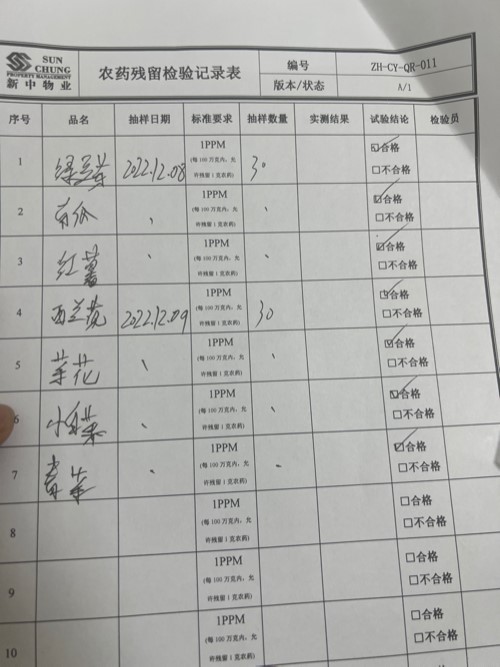 SUN CHUNG
PROPERTY MANAGEMENT
新中物业
农药残留检验记录表
编号 ZH-CY-QR-011
版本/状态 A/1
序号 品名 抽样日期 标准要求 抽样数量 实测结果 试验结论 检验员
1 绿豆芽 2022.12.08 1PPM (每100万克内,允许残留1克农药) 30 ☑合格 □不合格
2 1PPM (每100万克内,允许残留1克农药) ☑合格 □不合格
3 红薯 1PPM (每100万克内,允许残留1克农药) ☑合格 □不合格
4 西兰花 2022.12.09 1PPM (每100万克内,允许残留1克农药) 30 ☑合格 □不合格
5 菜花 1PPM (每100万克内,允许残留1克农药) ☑合格 □不合格
6 1PPM (每100万克内,允许残留1克农药) ☑合格 □不合格
7 青菜 1PPM (每100万克内,允许残留1克农药) ☑合格 □不合格
8 1PPM (每100万克内,允许残留1克农药) □合格 □不合格
9 1PPM (每100万克内,允许残留1克农药) □合格 □不合格
10 1PPM (每100万克内,允许残留1克农药) □合格 □不合格